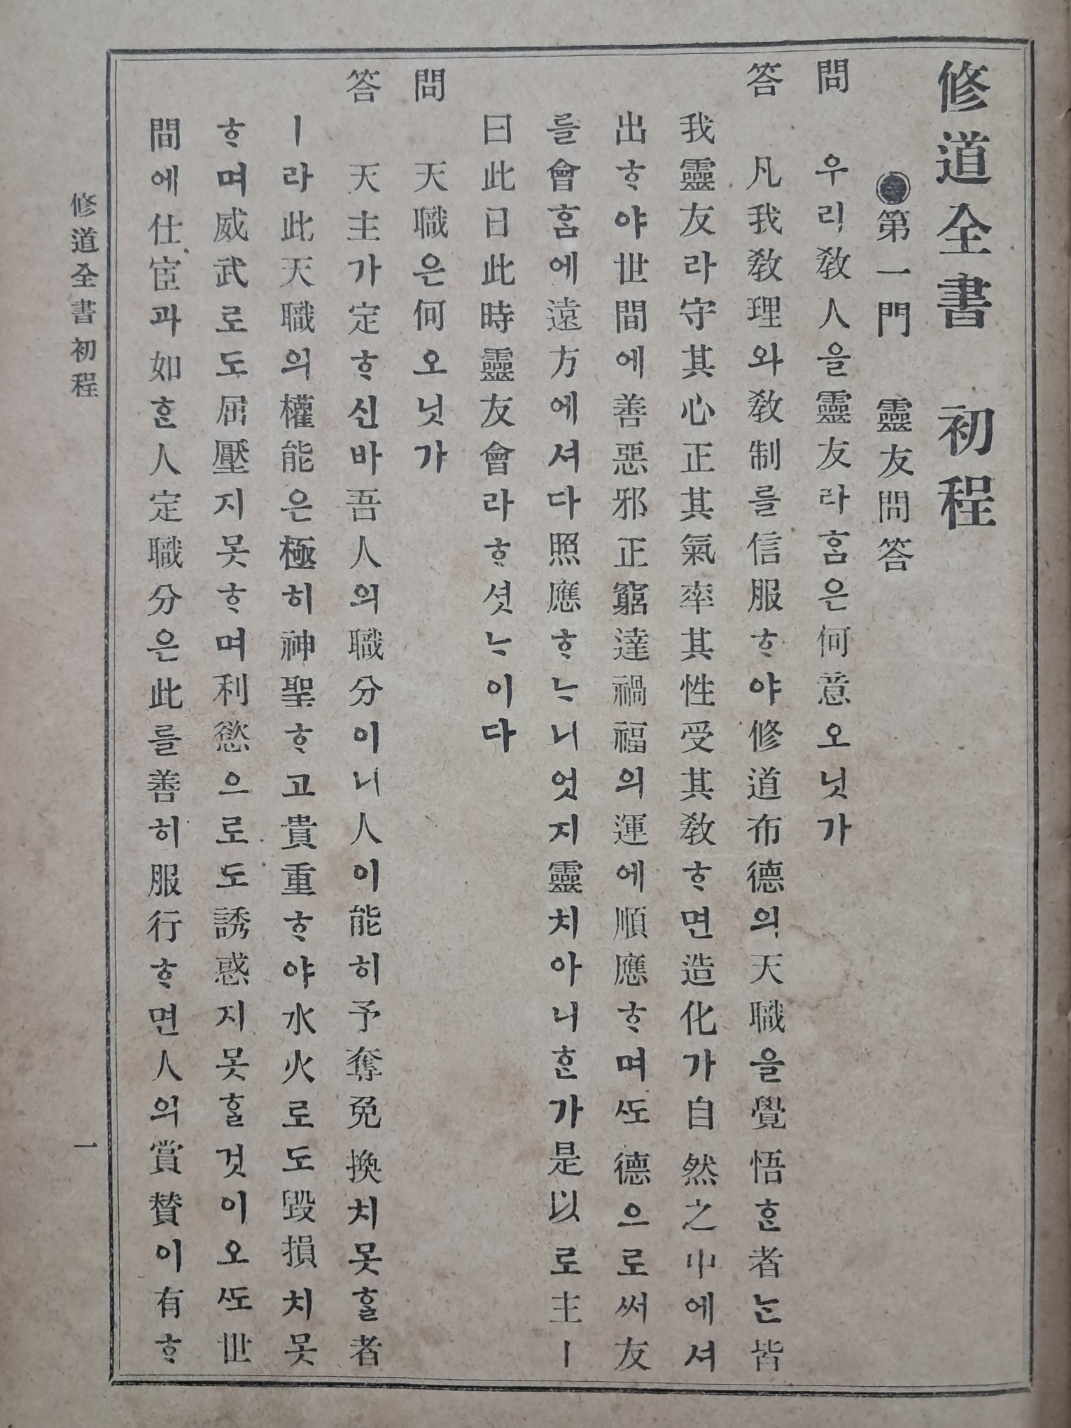 修道全書 初程
第一門 靈友問答
問 우리敎人을靈友라홈은何意오닛가
答 凡我敎理와敎制를信服ᄒᆞ야修道布德의天職을覺悟ᄒᆞᆫ者ᄂᆞᆫ皆
我靈友라守其心正其氣率其性受其敎ᄒᆞ면造化가自然之中에셔
出ᄒᆞ야世間에善惡邪正窮達禍福의運에順應ᄒᆞ며ᄯᅩ德으로써友
를會홈에遠方에셔다照應ᄒᆞᄂᆞ니엇지靈치아니ᄒᆞᆫ가是以로主ㅣ
曰此日此時靈友會라ᄒᆞ셧ᄂᆞ이다
問 天職은何오닛가
答 天主가定ᄒᆞ신바吾人의職分이니人이能히予奪免換치못ᄒᆞᆯ者
ㅣ라此天職의權能은極히神聖ᄒᆞ고貴重ᄒᆞ야水火로도毀損치못
ᄒᆞ며威武로도屈壓지못ᄒᆞ며利慾으로도誘惑지못ᄒᆞᆯ것이오ᄯᅩ世
間에仕宦과如ᄒᆞᆫ人定職分은此를善히服行ᄒᆞ면人의賞贊이有ᄒᆞ
修道全書初程
一